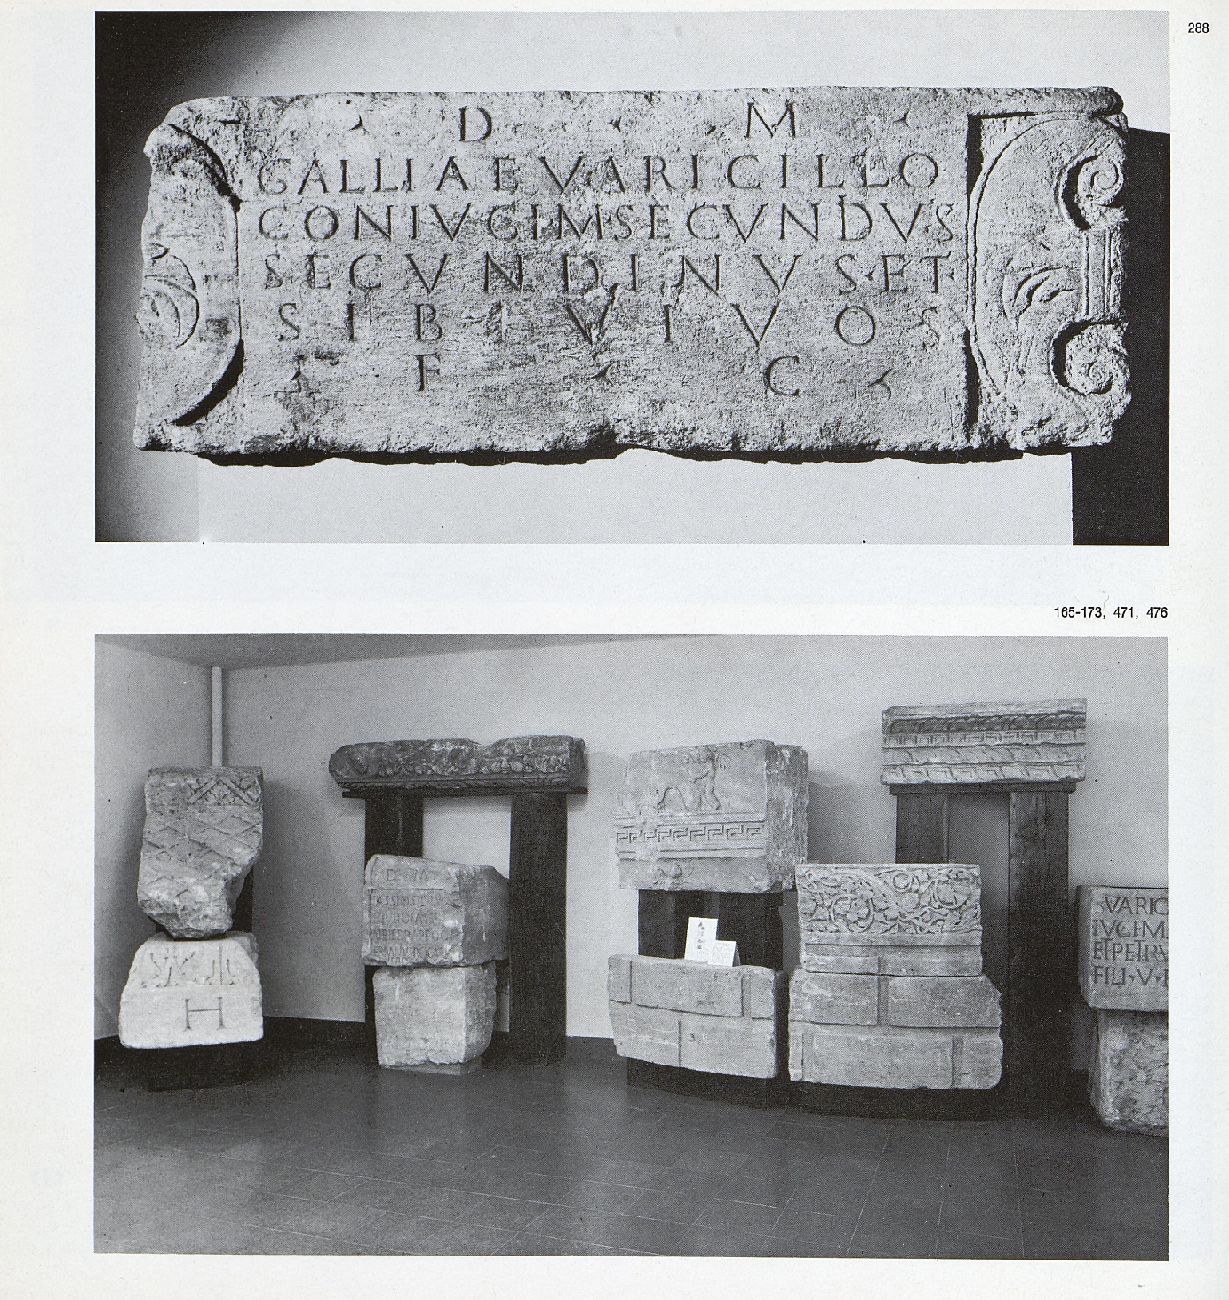 288
D M
GALLIAE VARICILLO
CONIVGI M SECVNDVS
SECVNDINVS ET
SIBI VIVOS
F C
165-173, 471, 476
H
VARIC
IVGI M
ET PETRV
FILI · V ·